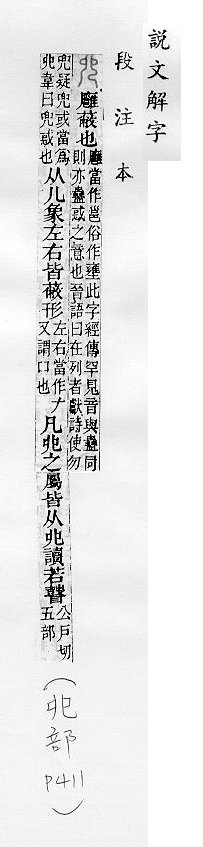 說文解字
段注本
𠑹廱蔽也廱當作邕俗作壅此字經傳罕見音與蠱同則亦蠱惑之意也晉語曰在列者獻詩使勿
兜疑兜或當爲𠑹韋曰兜惑也从儿象左右皆蔽形左右當作𠂇又謂口也凡𠑹之屬皆从𠑹讀若瞽公戶切五部
(𠑹部P411)